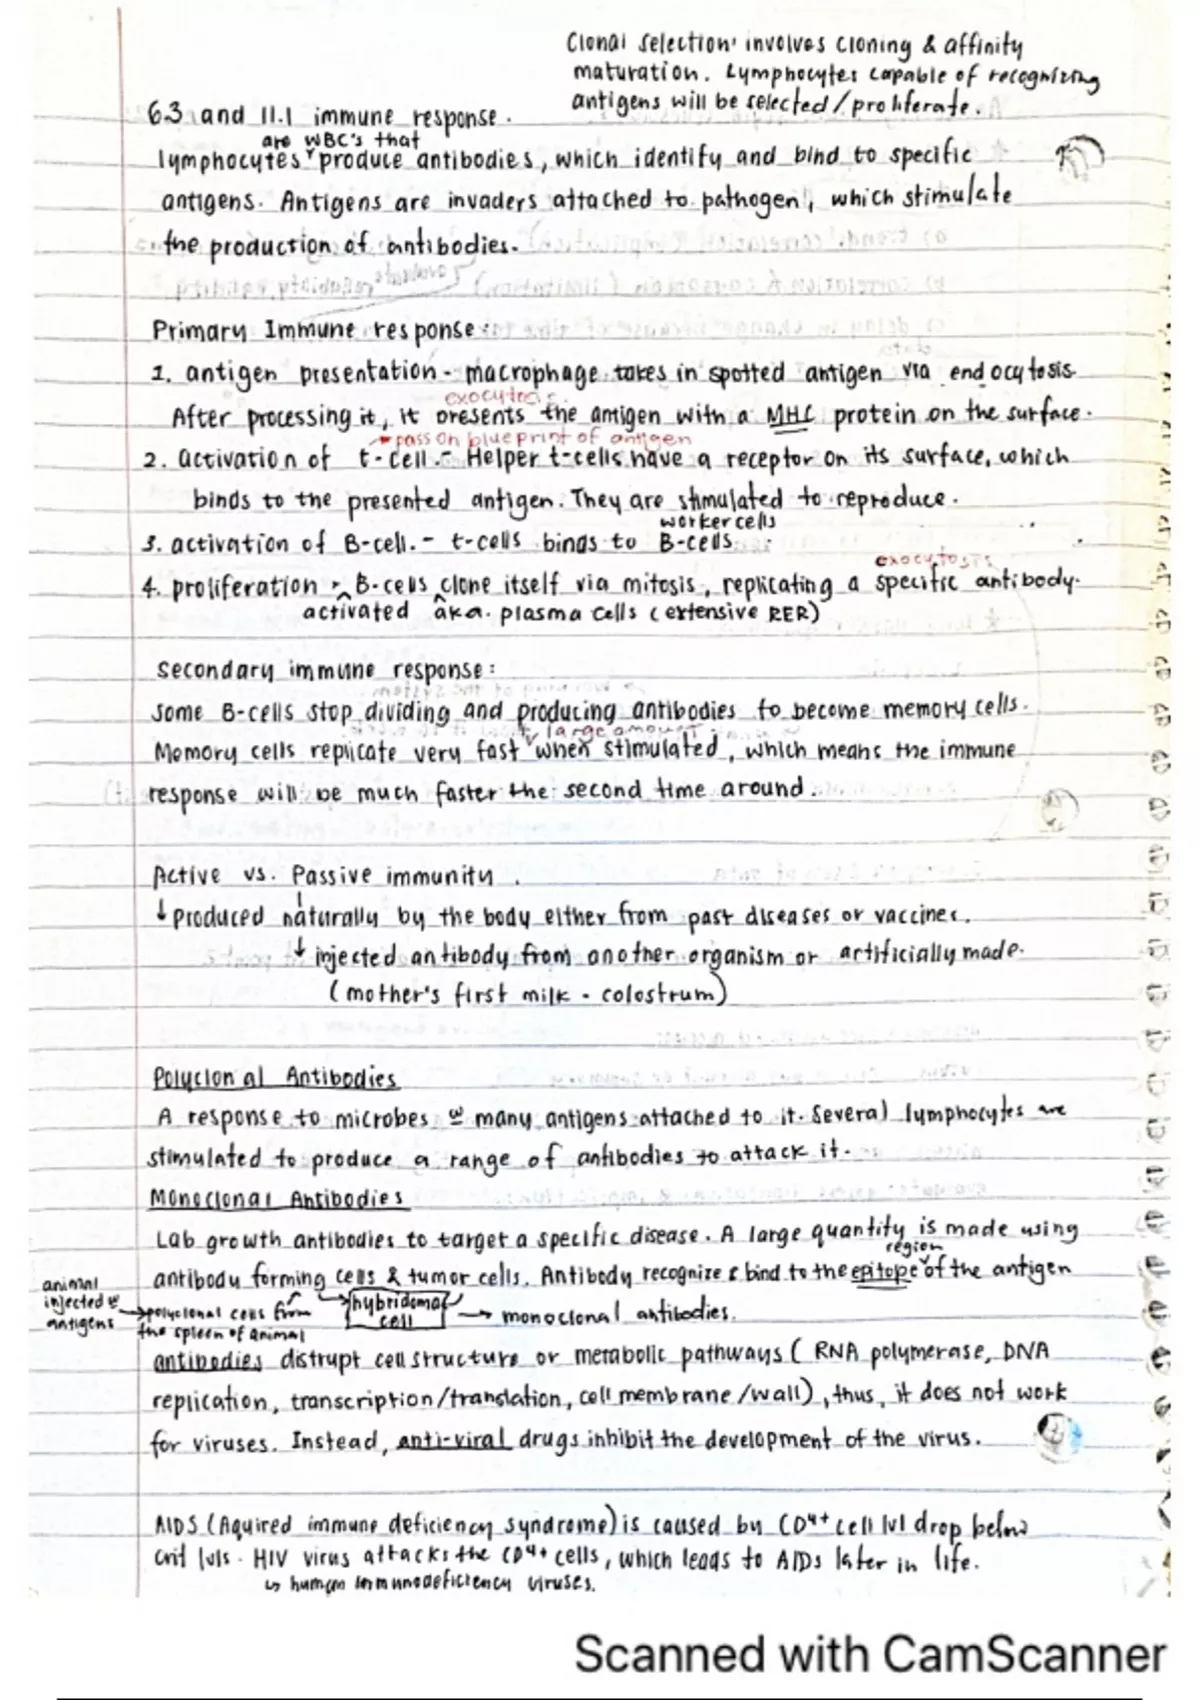 Clonal selection: involves cloning & affinity
maturation. Lymphocytes capable of recognizing
antigens will be selected/proliferate.
6.3 and 11.1 immune response.
are WBC's that
lymphocytes produce antibodies, which identify and bind to specific
antigens. Antigens are invaders attached to pathogen, which stimulate
the production of antibodies.
Primary Immune response:
1. antigen presentation - macrophage takes in spotted antigen via endocytosis.
exocytosis
After processing it, it presents the antigen with a MHC protein on the surface.
pass on blueprint of antigen
2. activation of t-cell - Helper t-cells have a receptor on its surface, which
binds to the presented antigen. They are stimulated to reproduce.
worker cells
3. activation of B-cell. - t-cells binds to B-cells
exocytosis
4. proliferation - B-cells clone itself via mitosis, replicating a specific antibody.
activated aka. plasma cells (extensive RER)
Secondary immune response:
Some B-cells stop dividing and producing antibodies to become memory cells.
large amount
Memory cells replicate very fast when stimulated, which means the immune
response will be much faster the second time around.
Active vs. Passive immunity.
↓ produced naturally by the body either from past diseases or vaccines.
↓ injected antibody from another organism or artificially made.
(mother's first milk - colostrum)
Polyclonal Antibodies
A response to microbes w many antigens attached to it. Several lymphocytes are
stimulated to produce a range of antibodies to attack it.
Monoclonal Antibodies
Lab growth antibodies to target a specific disease. A large quantity is made using
region
antibody forming cells & tumor cells. Antibody recognize & bind to the epitope of the antigen
animal
injected w
antigens
→ polyclonal cells from
the spleen of animal
hybridoma
cell
→ monoclonal antibodies.
antibodies distrupt cell structure or metabolic pathways (RNA polymerase, DNA
replication, transcription/translation, cell membrane/wall), thus, it does not work
for viruses. Instead, anti-viral drugs inhibit the development of the virus.
AIDS (Aquired immune deficiency syndrome) is caused by CD4+ cell lvl drop below
crit lvls. HIV virus attacks the CD4+ cells, which leads to AIDs later in life.
↳ human immunodeficiency viruses.
Scanned with CamScanner